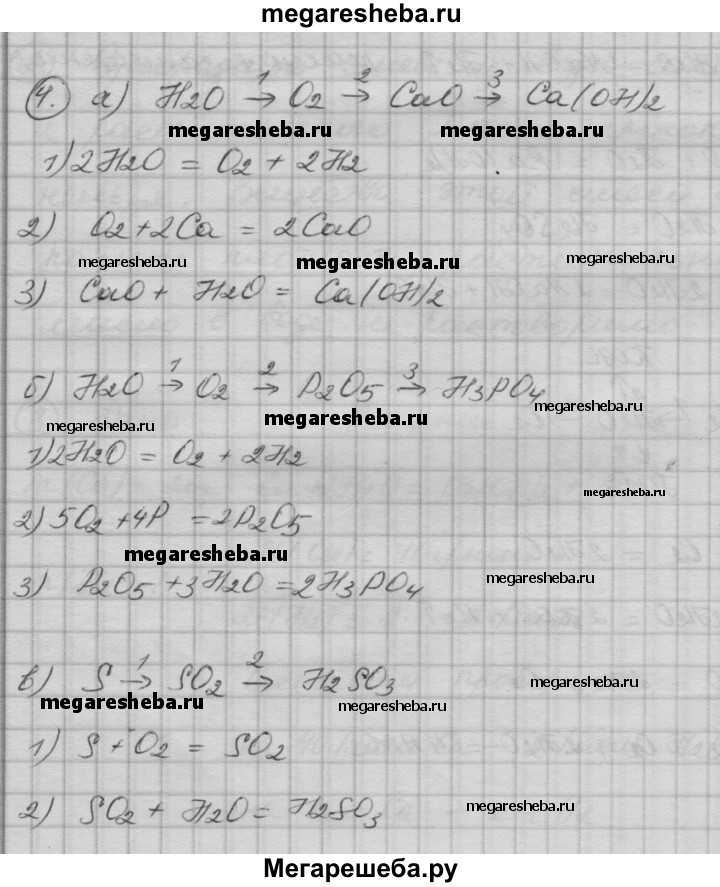 megaresheba.ru
4. а) H2O 1→ O2 2→ CaO 3→ Ca(OH)2
megaresheba.ru megaresheba.ru
1) 2H2O = O2 + 2H2
2) O2 + 2Ca = 2CaO
megaresheba.ru megaresheba.ru megaresheba.ru
3) CaO + H2O = Ca(OH)2
б) H2O 1→ O2 2→ P2O5 3→ H3PO4
megaresheba.ru megaresheba.ru megaresheba.ru
1) 2H2O = O2 + 2H2
megaresheba.ru
2) 5O2 + 4P = 2P2O5
megaresheba.ru
3) P2O5 + 3H2O = 2H3PO4
megaresheba.ru
в) S 1→ SO2 2→ H2SO3
megaresheba.ru megaresheba.ru megaresheba.ru
1) S + O2 = SO2
2) SO2 + H2O = H2SO3
megaresheba.ru
Мегарешеба.ру